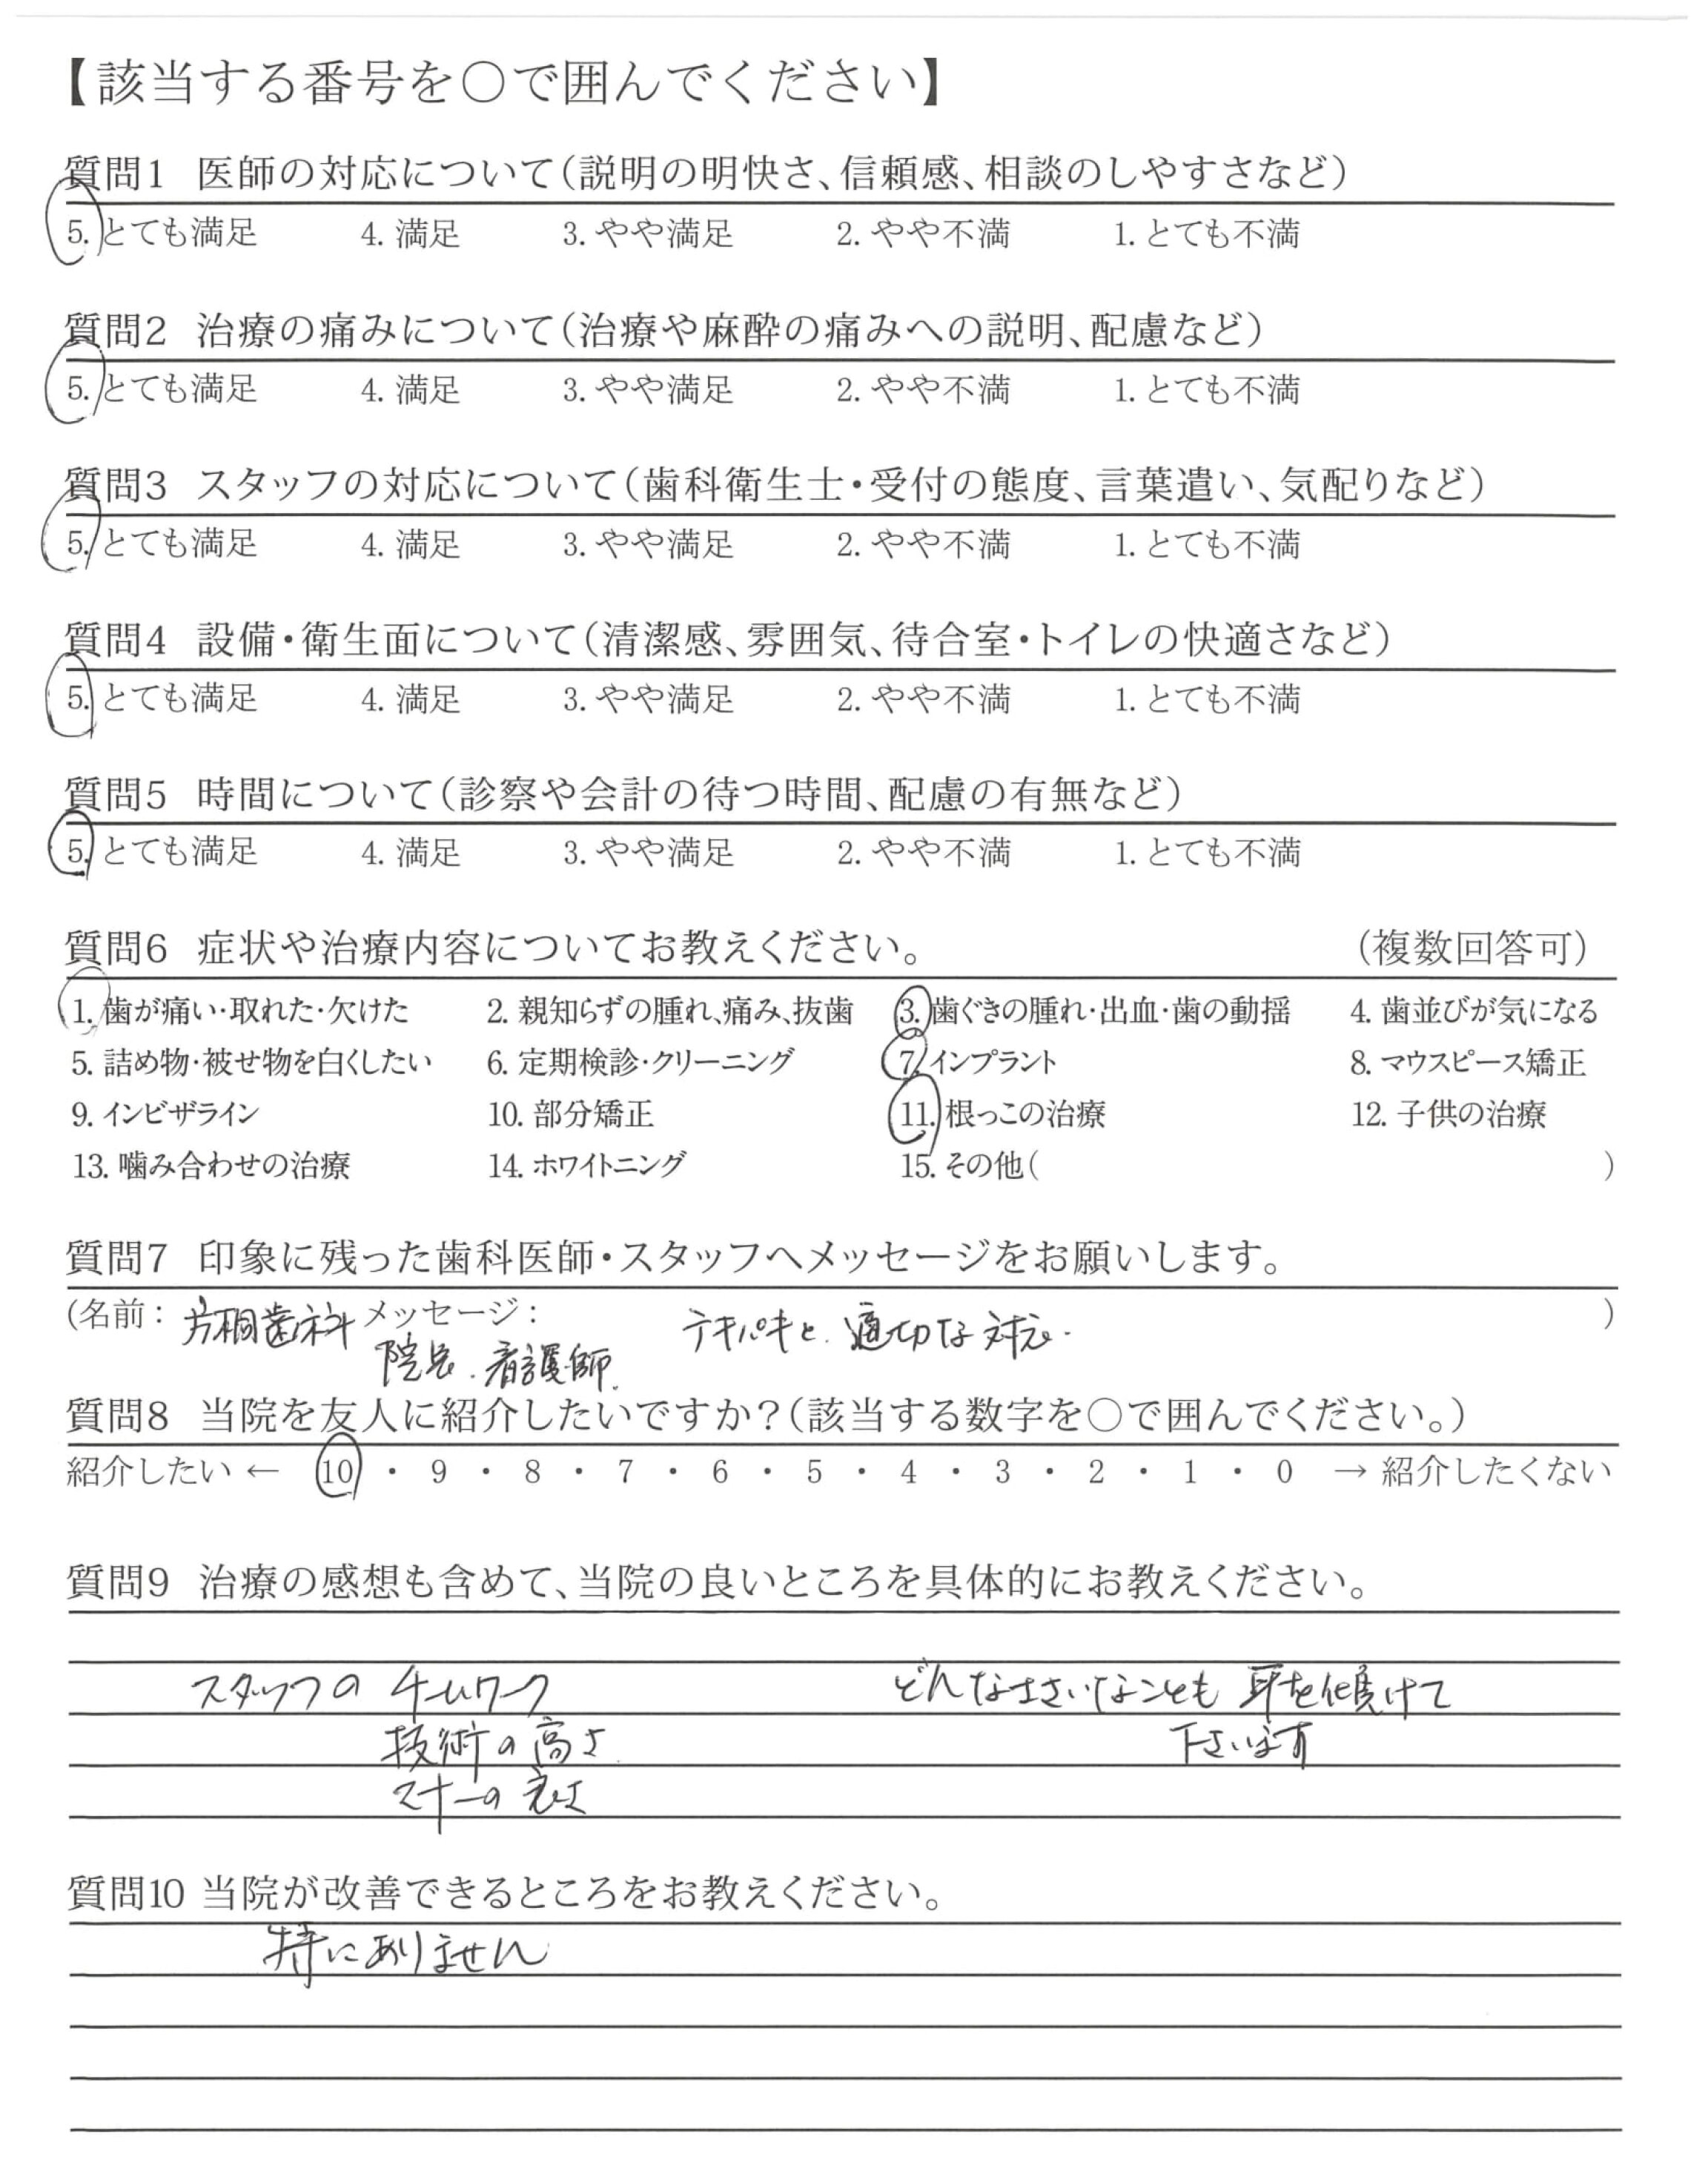 【該当する番号を〇で囲んでください】
質問1 医師の対応について(説明の明快さ、信頼感、相談のしやすさなど)
5. とても満足 4. 満足 3. やや満足 2. やや不満 1. とても不満
質問2 治療の痛みについて(治療や麻酔の痛みへの説明、配慮など)
5. とても満足 4. 満足 3. やや満足 2. やや不満 1. とても不満
質問3 スタッフの対応について(歯科衛生士・受付の態度、言葉遣い、気配りなど)
5. とても満足 4. 満足 3. やや満足 2. やや不満 1. とても不満
質問4 設備・衛生面について(清潔感、雰囲気、待合室・トイレの快適さなど)
5. とても満足 4. 満足 3. やや満足 2. やや不満 1. とても不満
質問5 時間について(診察や会計の待つ時間、配慮の有無など)
5. とても満足 4. 満足 3. やや満足 2. やや不満 1. とても不満
質問6 症状や治療内容についてお教えください。 (複数回答可)
1. 歯が痛い・取れた・欠けた 2. 親知らずの腫れ、痛み、抜歯 3. 歯ぐきの腫れ・出血・歯の動揺 4. 歯並びが気になる
5. 詰め物・被せ物を白くしたい 6. 定期検診・クリーニング 7. インプラント 8. マウスピース矯正
9. インビザライン 10. 部分矯正 11. 根っこの治療 12. 子供の治療
13. 噛み合わせの治療 14. ホワイトニング 15. その他( )
質問7 印象に残った歯科医師・スタッフへメッセージをお願いします。
(名前: 片桐歯科 メッセージ: テキパキと、適切な対応. )
院長. 看護師.
質問8 当院を友人に紹介したいですか?(該当する数字を〇で囲んでください。)
紹介したい ← 10 ・ 9 ・ 8 ・ 7 ・ 6 ・ 5 ・ 4 ・ 3 ・ 2 ・ 1 ・ 0 → 紹介したくない
質問9 治療の感想も含めて、当院の良いところを具体的にお教えください。
スタッフの チームワーク どんなささいなことも 耳を傾けて
技術の高さ 下さいます
マナーの良さ
質問10 当院が改善できるところをお教えください。
特にありません